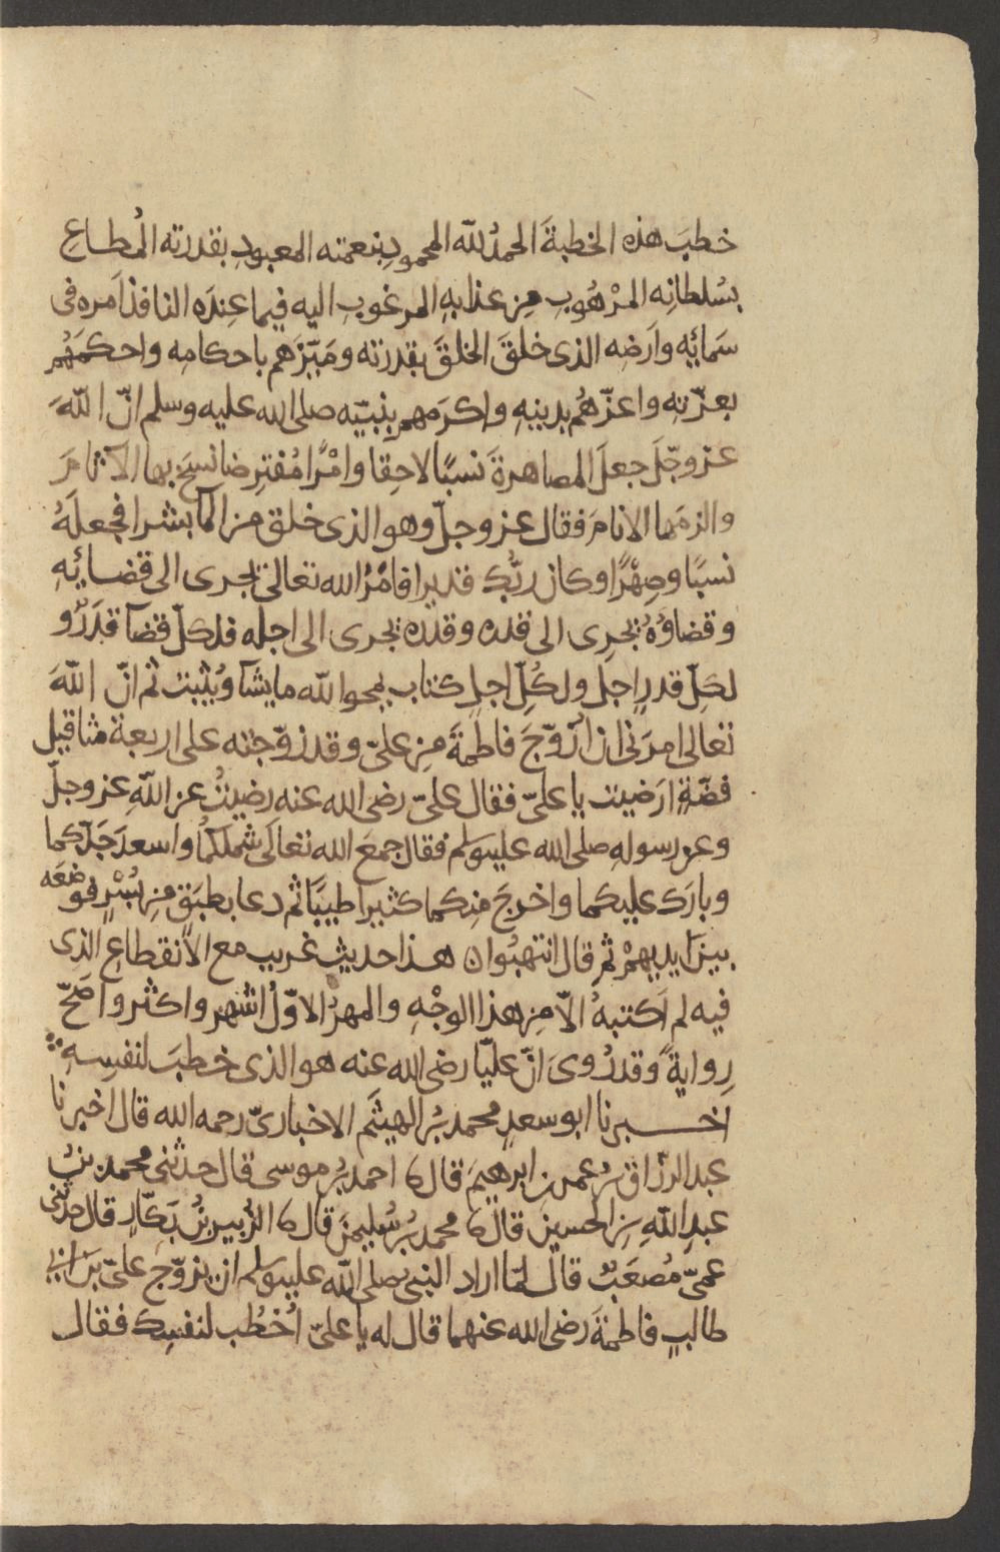 خطبَ هذه الخطبةَ الحمدُ للّه المحمودِ بنعمته المعبودِ بقدرته المُطاعِ
بسُلطانِه المرْهُوبِ مِن عذابهِ المرغوبِ اليه فيما عِندَه النافذ اَمره فى
سَمائِه وارَضِه الذى خلقَ الخلقَ بقدرته ومَيّزَهم باحكامِه واحكمَهُم
بعزّتهِ واعزّهُم بدينهِ واكرَمهم بِنبيّه صلى الله عليه وسلم انّ اللّهَ
عز وجّل جعلَ المصاهرةَ نسبًا لاحِقا وامْرًا مُفترِضا نسخَ بها الآثامَ
والزمَها الانامَ فقال عز وجلّ وهو الذى خلق من المآ بشرا فجعلَهُ
نسبًا وصِهْرًا وكان ربُّك قديرا فامْرُ الله تعالى يجرى الى قضائِهِ
وقضاؤُهُ يجرِى الى قدره وقدره يجرى الى اجله فلكلّ قضآ قدَرٌ و
لكلّ قدرٍ اجل ولكُلّ اجلٍ كتاب يمحوا للّه مايشآ ويُثبت ثم انّ اللّهَ
تعالى امرَنى ان اُزوّجَ فاطمةَ مِن علىّ وقد زوّجته على اربعة مثاقيل
فضّةٍ ارَضيت يا علىّ فقال علىّ رضى الله عنه رضيتُ عن اللّهِ عز وجلّ
وعن رسولهِ صلى الله عليه وسلم فقال جمعَ الله تعالَى شملَكُما واسعدَ جَدّكما
وبارَك عليكما واخرجَ مِنكما كثيرا طيّبًا ثم دعا بطبَقٍ مِن بُسْرٍ فوضَعَه
بينَ ايديهمْ ثم قال انتهبُوا ه هذا حديث غريب مع الاْنقطاعِ الذى
فيه لم اَكتبهُ الاّ مِن هذا الوجْهِ والمهرُ الاوّلُ اشهر واكثر واصَحّ
رِوايةً وقد رُوىَ انّ عليّا رضى الله عنه هو الذى خطبَ لنفسِهِ
اخـبرنا ابو سعدٍ محمد بنُ الهيثَم الاخبارىّ رحمه الله قال اخبرنا
عبد الرزاق بن عمر بن ابرهيمَ قال ٮا احمد بنُ موسى قال حدثنى محمد بنُ
عبدِ اللّهِ بنِ الحسينِ قال ٮا محمد بنُ سُليمنَ قال ٮا الزُبير بنُ بَكّارٍ قال حدثنى
عمىّ مُصعَبٌ قال لمّا اراد النبى صلى اللّه عليه وسلم ان يزوّج علىّ بن ابى
طالبٍ فاطمةَ رضى الله عنهما قال له يا علىّ اُخطُب لنفسِك فقال